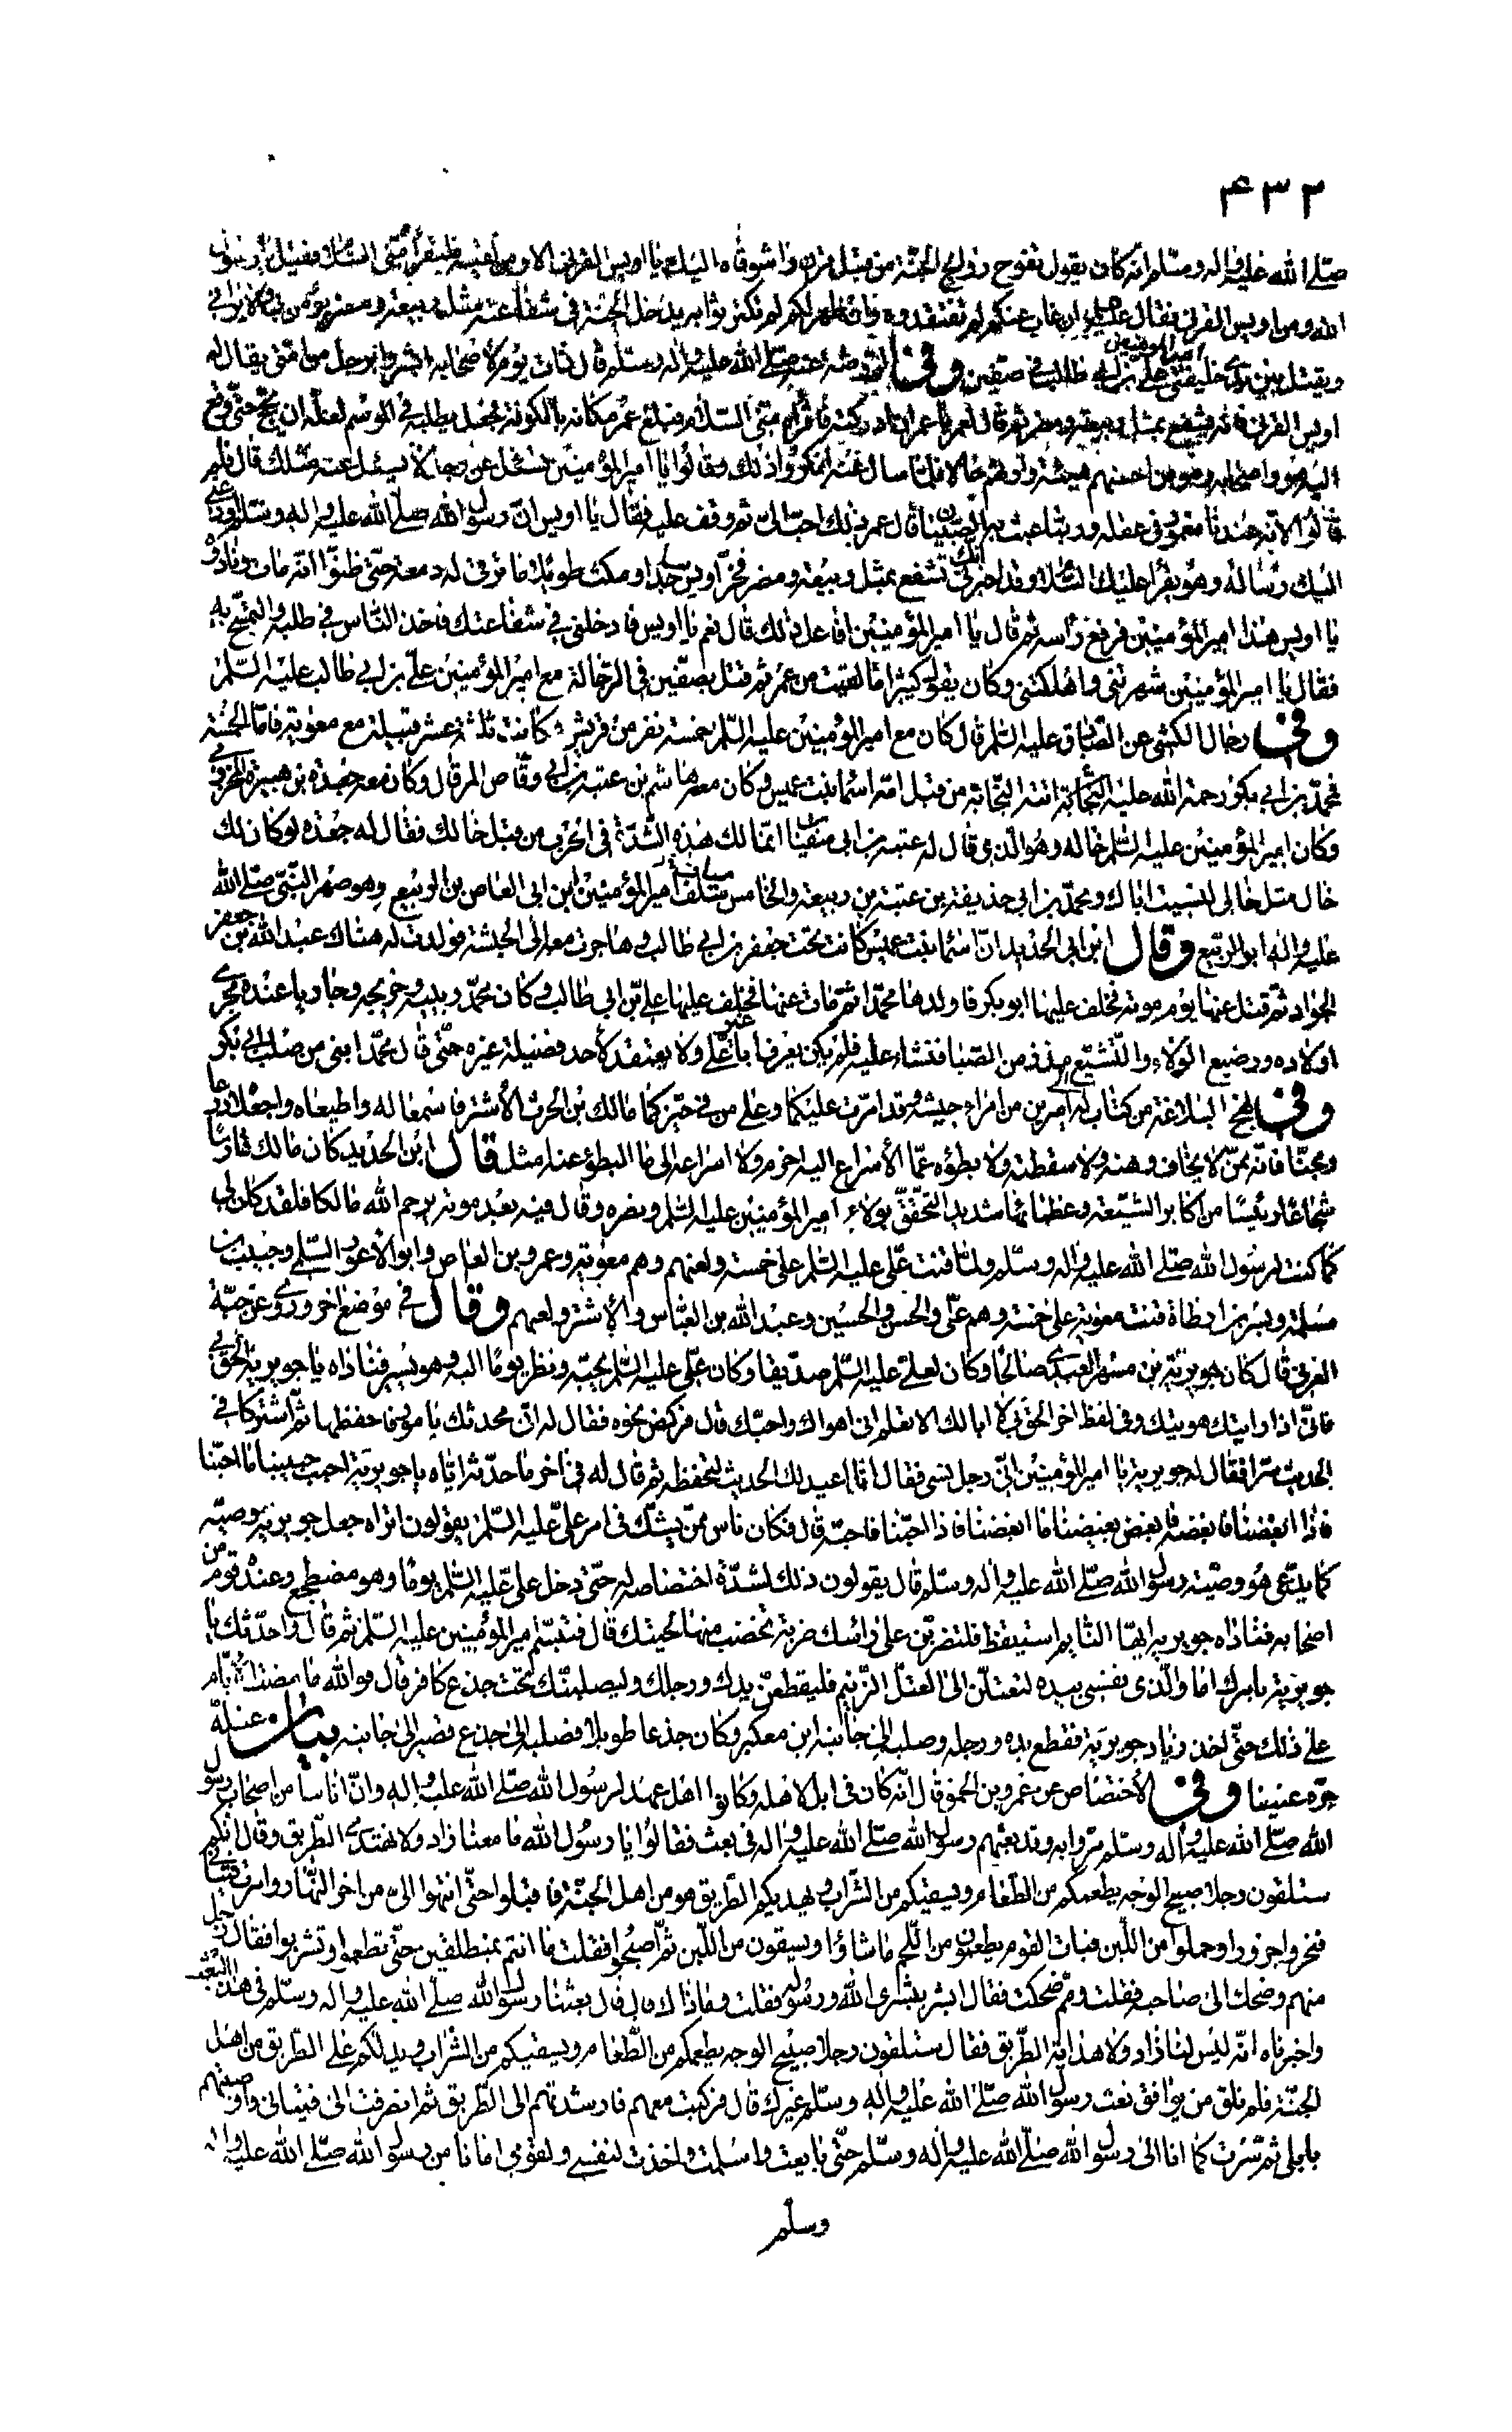 ۴۳۲
صلّى الله عليه واله وسلّم انه كان يقول تفوح روايح الجنّة من قبل قرن واشوقاه اليك يا اويس القرنى الا ومن لقيه فليقرأه منّى السّلام فقيل يا رسول
الله ومن اويس القرنى فقال عليه السلام ان غاب عنكم لم تفتقدوه وان ظهر لكم لم تكترثوا به يدخل الجنّة فى شفاعته مثل ربيعة ومضر يؤمن بى ولا يرانى
ويقتل بين يدى خليفتى امير المؤمنين على بن ابى طالب فى صفّين وفى عنه صلّى الله عليه واله وسلّم قال ذات يوم لاصحابه ابشروا برجل من امّتى يقال له
اويس القرنى فانه يشفع بمثل ربيعة ومضر ثم قال لعمر يا عمر ان ادركته فاقرأه منّى السّلام فبلغ عمر مكانه بالكوفة فجعل يطلبه فى الموسم لعلّه ان يحج حتّى وقع
اليه هو واصحابه وهو من احسنهم هيئة وارثّهم حالا فلمّا سال عنه انكروا ذلك وقالوا يا امير المؤمنين تسئل عن رجل لا يسئل عنه مثلك قال فلم
قالوا لانّه عندنا مغمور فى عقله وربّما عبث به الصّبيان قال عمر ذلك احبّ الىّ ثم وقف عليه فقال يا اويس انّ رسول الله صلّى الله عليه واله وسلّم اودعنى
اليك رسالة وهو يقرأ عليك السّلام وقد اخبرنى انّك تشفع بمثل ربيعة ومضر فخرّ اويس ساجدا ومكث طويلا ما ترقى له دمعة حتّى ظنّوا انّه مات ونادوه
يا اويس هذا امير المؤمنين فرفع رأسه ثم قال يا امير المؤمنين افاعل ذلك قال نعم يا اويس فادخلنى فى شفاعتك فاخذ النّاس فى طلبه والتمسّح به
فقال يا امير المؤمنين شهرتنى واهلكتنى وكان يقول كثيرا ما لقيت من عمر ثم قتل بصفّين فى الرجّالة مع امير المؤمنين علىّ بن ابى طالب عليه السّلم
وفى رجال الكشى عن الصّادق عليه السّلم قال كان مع امير المؤمنين عليه السّلم خمسة نفر من قريش وكانت ثلثة عشر قبيلة مع معوية فامّا الخمسة
محمّد بن ابى بكر رحمة الله عليه اتته النّجابة من قبل امّه اسماء بنت عميس وكان معه هاشم بن عتبة بن ابى وقّاص المرقال وكان معه جعدة بن هبيرة المخزومى
وكان امير المؤمنين عليه السّلم خاله وهو الّذى قال له عتبة بن ابى سفين انّما لك هذه الشّدّة فى الحرب من قبل خالك فقال له جعدة لو كان لك
خال مثل خالى لنسيت اباك ومحمّد بن ابى حذيفة بن عتبة بن ربيعة والخامس سلف امير المؤمنين ابن ابى العاص بن الربيع وهو صهر النّبىّ صلّى الله
عليه واله ابو الربيع وقال ابن ابى الحديد انّ اسماء بنت عميس كانت تحت جعفر بن ابى طالب وهاجرت معه الى الحبشة فولدت له هناك عبد الله بن جعفر
الجواد ثم قتل عنها يوم موتة فخلف عليها ابو بكر فاولدها محمّدا ثم مات عنها فخلف عليها علىّ بن ابى طالب وكان محمّد ربيبه وخرّيجه وجاريا عنده مجرى
اولاده ورضيع الولاء والتّشيّع مذ زمن الصّبا فنشاء عليه فلم يكن يعرف ابا غير علىّ ولا يعتقد لأحد فضيلة غيره حتّى قال محمّد ابنى من صلب ابى بكر
وفى نهج البلاغة من كتاب له الى اميرين من امراء جيشه وقد امّرت عليكما وعلى من فى حيّزكما مالك بن الحرث الأشتر فاسمعا له واطيعاه واجعلاه درعا
ومجنّا فانّه ممّن لا يخاف وهنه ولا سقطته ولا بطؤه عمّا الأسراع اليه احزم ولا اسراعه الى ما البطؤ عنه امثل قال ابن الحديد كان مالك فارسا
شجاعا رئيسا من اكابر الشّيعة وعظمائها شديد التحقّق بولاء امير المؤمنين عليه السّلم ونصره وقال فيه بعد موته يرحم الله مالكا فلقد كان لى
كما كنت لرسول الله صلّى الله عليه واله وسلّم ولمّا قنت علىّ عليه السّلم على خمسة ولعنهم وهم معوية وعمرو بن العاص وابو الأعور السّلمى وحبيب بن
مسلمة وبسر بن ارطاة قنت معوية على خمسة وهم علىّ والحسن والحسين وعبد الله بن العبّاس والأشتر ولعنهم وقال فى موضع اخر وروى عن حبّة
العرنى قال كان جويرية بن مسهر العبدى صالحا وكان لعلى عليه السّلم صديقا وكان علىّ عليه السّلم يحبّه ونظر يوما اليه وهو يسير فناداه يا جويرية الحق بى
فانّى اذا رايتك هويتك وفى لفظ اخر الحق بى لا ابا لك الا تعلم انى اهواك واحبّك قال فركض نحوه فقال له انّى محدثك بامور فاحفظها ثم اشتركا فى
الحديث سرّا فقال له جويرية يا امير المؤمنين انّى رجل نسى فقال انا اعيد لك الحديث لتحفظه ثم قال له فى اخر ما حدّثه ايّاه يا جويرية احبب حبيبنا ما احبّنا
فاذا ابغضنا فابغضه وابغض بغيضنا ما ابغضنا فاذا احبّنا فاحبّه قال فكان ناس ممّن يشكّ فى امر علىّ عليه السّلم يقولون اتراه جعل جويرية وصيّه
كما يدّعى هو وصيّة رسول الله صلّى الله عليه واله وسلّم قال يقولون ذلك لشدّة اختصاصه له حتّى دخل على علىّ عليه السّلم يوما وهو مضطجع وعنده قوم من
اصحابه فناداه جويرية ايّها النّايم استيقظ فلتضربنّ على رأسك ضربة تخضب منها لحيتك قال فتبسّم امير المؤمنين عليه السّلم ثم قال واحدّثك يا
جويرية بامرك اما والّذى نفسى بيده لتعتلنّ الى العتلّ الزّنيم فليقطعنّ يدك ورجلك وليصلبنّك تحت جذع كافر قال فوالله ما مضت ايّام
على ذلك حتّى اخذ زياد جويرية فقطع يده ورجله وصلبه الى جانب ابن معكبر وكان جذعا طويلا فصلبه الى جذع قصير الى جانبه بيان عتله
جرّه عنيفا وفى الأختصاص عن عمرو بن الحمق قال انّه كان فى ابل لاهله وكانوا اهل عهد لرسول الله صلّى الله عليه واله وانّ اناسا من اصحاب رسول
الله صلّى الله عليه واله وسلّم مرّوا به وقد بعثهم رسول الله صلّى الله عليه واله فى بعث فقالوا يا رسول الله ما معنا زاد ولا نهتدى الطّريق وقال انّكم
ستلقون رجلا صبيح الوجه يطعمكم من الطّعام ويسقيكم من الشّراب ويهديكم الطّريق هو من اهل الجنّة فاقبلوا حتّى انتهوا الىّ من اخر النّهار وامرت فتيانى
فنحروا جزورا وحملوا من اللّبن فبات القوم يطعمون من اللّحم ما شاؤا ويسقون من اللّبن ثم اصبحوا فقلت ما انتم بمنطلقين حتّى تطعموا وتشربوا فقال رجل
منهم وضحك الى صاحبه فقلت ومم ضحكت فقال ابشر ببشرى الله ورسوله فقلت وماذاك قال قال بعثنا رسول الله صلّى الله عليه واله وسلّم فى هذا البعث
واخبرناه انّه ليس لنا زاد ولا هداية الطّريق فقال ستلقون رجلا صبيح الوجه يطعمكم من الطّعام ويسقيكم من الشّراب ويدلّكم على الطّريق من اهل
الجنّة فلم نلق من يوافق نعت رسول الله صلّى الله عليه واله وسلّم غيرك قال فركبت معهم فارشدتهم الى الطّريق ثم انصرفت الى فتيانى واوصيتهم
بابلى ثم سرت كما انا الى رسول الله صلّى الله عليه واله وسلّم حتّى بايعت واسلمت واخذت لنفسى ولقومى امانا من رسول الله صلّى الله عليه واله
وسلّم